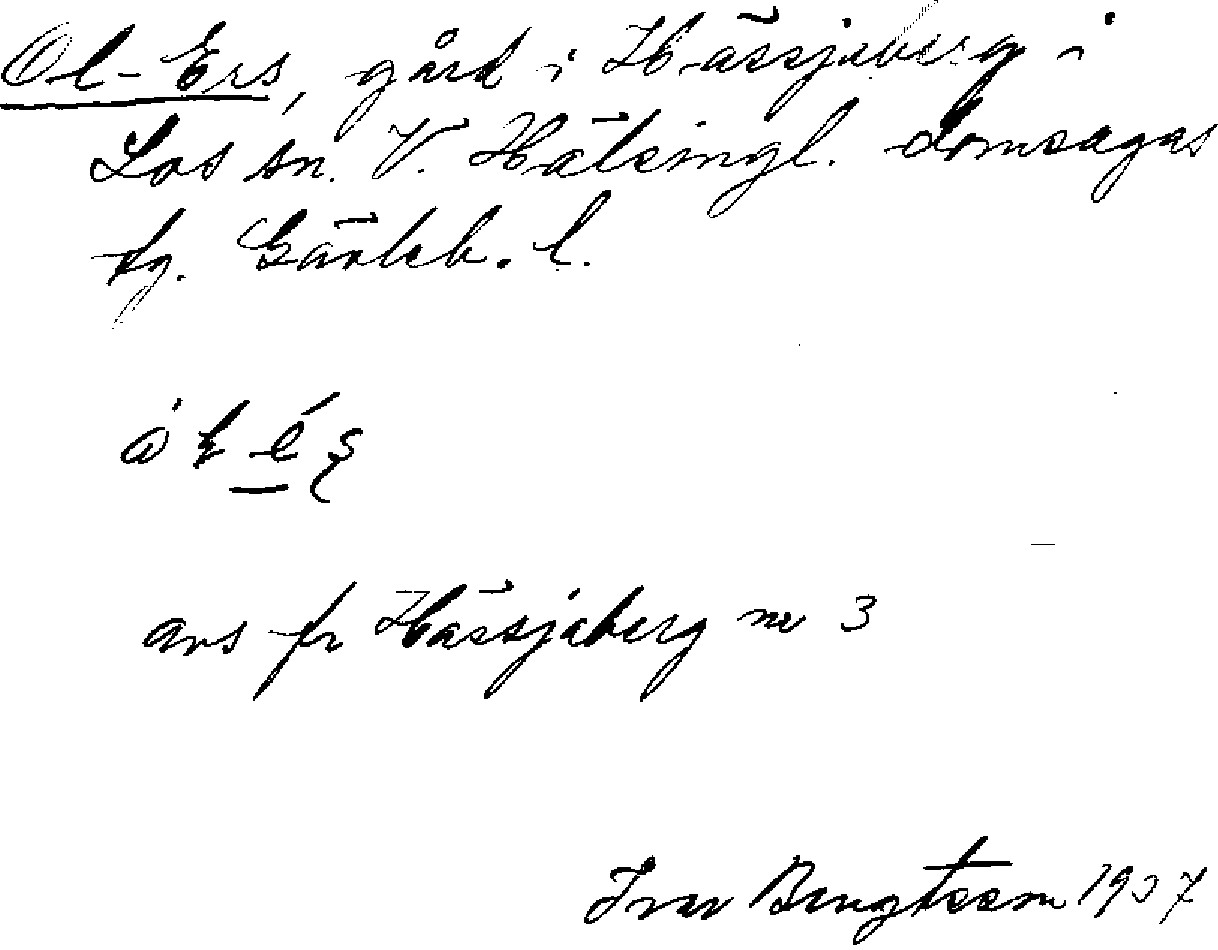 Ol-Ers, gård i Hässjaberg i
Los sn. V. Hälsingl. domsagas
tg. Gävleb. l.
avs fr Hässjaberg nr 3
Ivar Bengtsson 1937